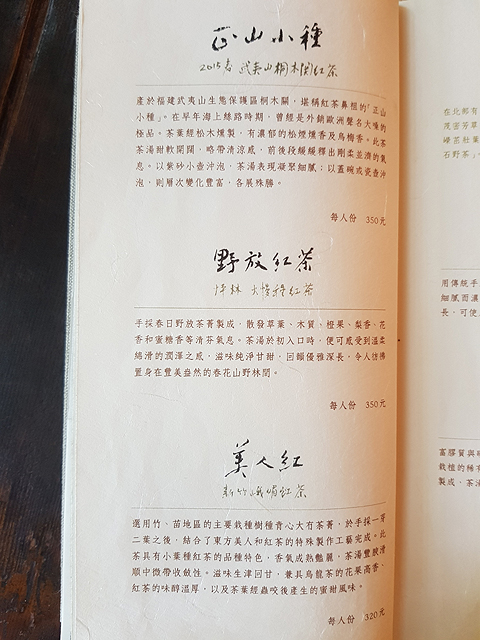 正山小種
2015春 武夷山桐木関紅茶
產於福建武夷山生態保護區桐木關，堪稱紅茶鼻祖的「正山
小種」。在早年海上絲路時期，曾經是外銷歐洲聲名大噪的
極品。茶葉經松木燻製，有濃郁的松煙燻香及烏梅香。此茶
茶湯甜軟開闊，略帶清涼感，前後段緩緩釋出剛柔並濟的氣
息。以紫砂小壺沖泡，茶湯表現凝聚細膩；以蓋碗或瓷壺沖
泡，則層次變化豐富，各展殊勝。
每人份 350元
野放紅茶
坪林 大慢種紅茶
手採春日野放茶菁製成，散發草葉、木質、橙果、梨香、花
香和蜜糖香等清芬氣息。茶湯於初入口時，便可感受到溫柔
綿滑的潤澤之感，滋味純淨甘甜，回韻優雅深長，令人彷彿
置身在豐美盎然的春花山野林間。
每人份 350元
美人紅
新竹峨嵋紅茶
選用竹、苗地區的主要栽種樹種青心大冇茶菁，於手採一芽
二葉之後，結合了東方美人和紅茶的特殊製作工藝完成。此
茶具有小葉種紅茶的品種特色，香氣成熟艷麗，茶湯豐腴滑
順中微帶收斂性。滋味生津回甘，兼具烏龍茶的花果高香、
紅茶的味醇溫厚，以及茶葉經蟲咬後產生的蜜甜風味。
每人份 320元
在北部有
茂密芳草
嶸茁壯
石野茶」
用傳統手
細膩而濃
長、可使
富膠質與
栽植的稀有
製成、茶湯